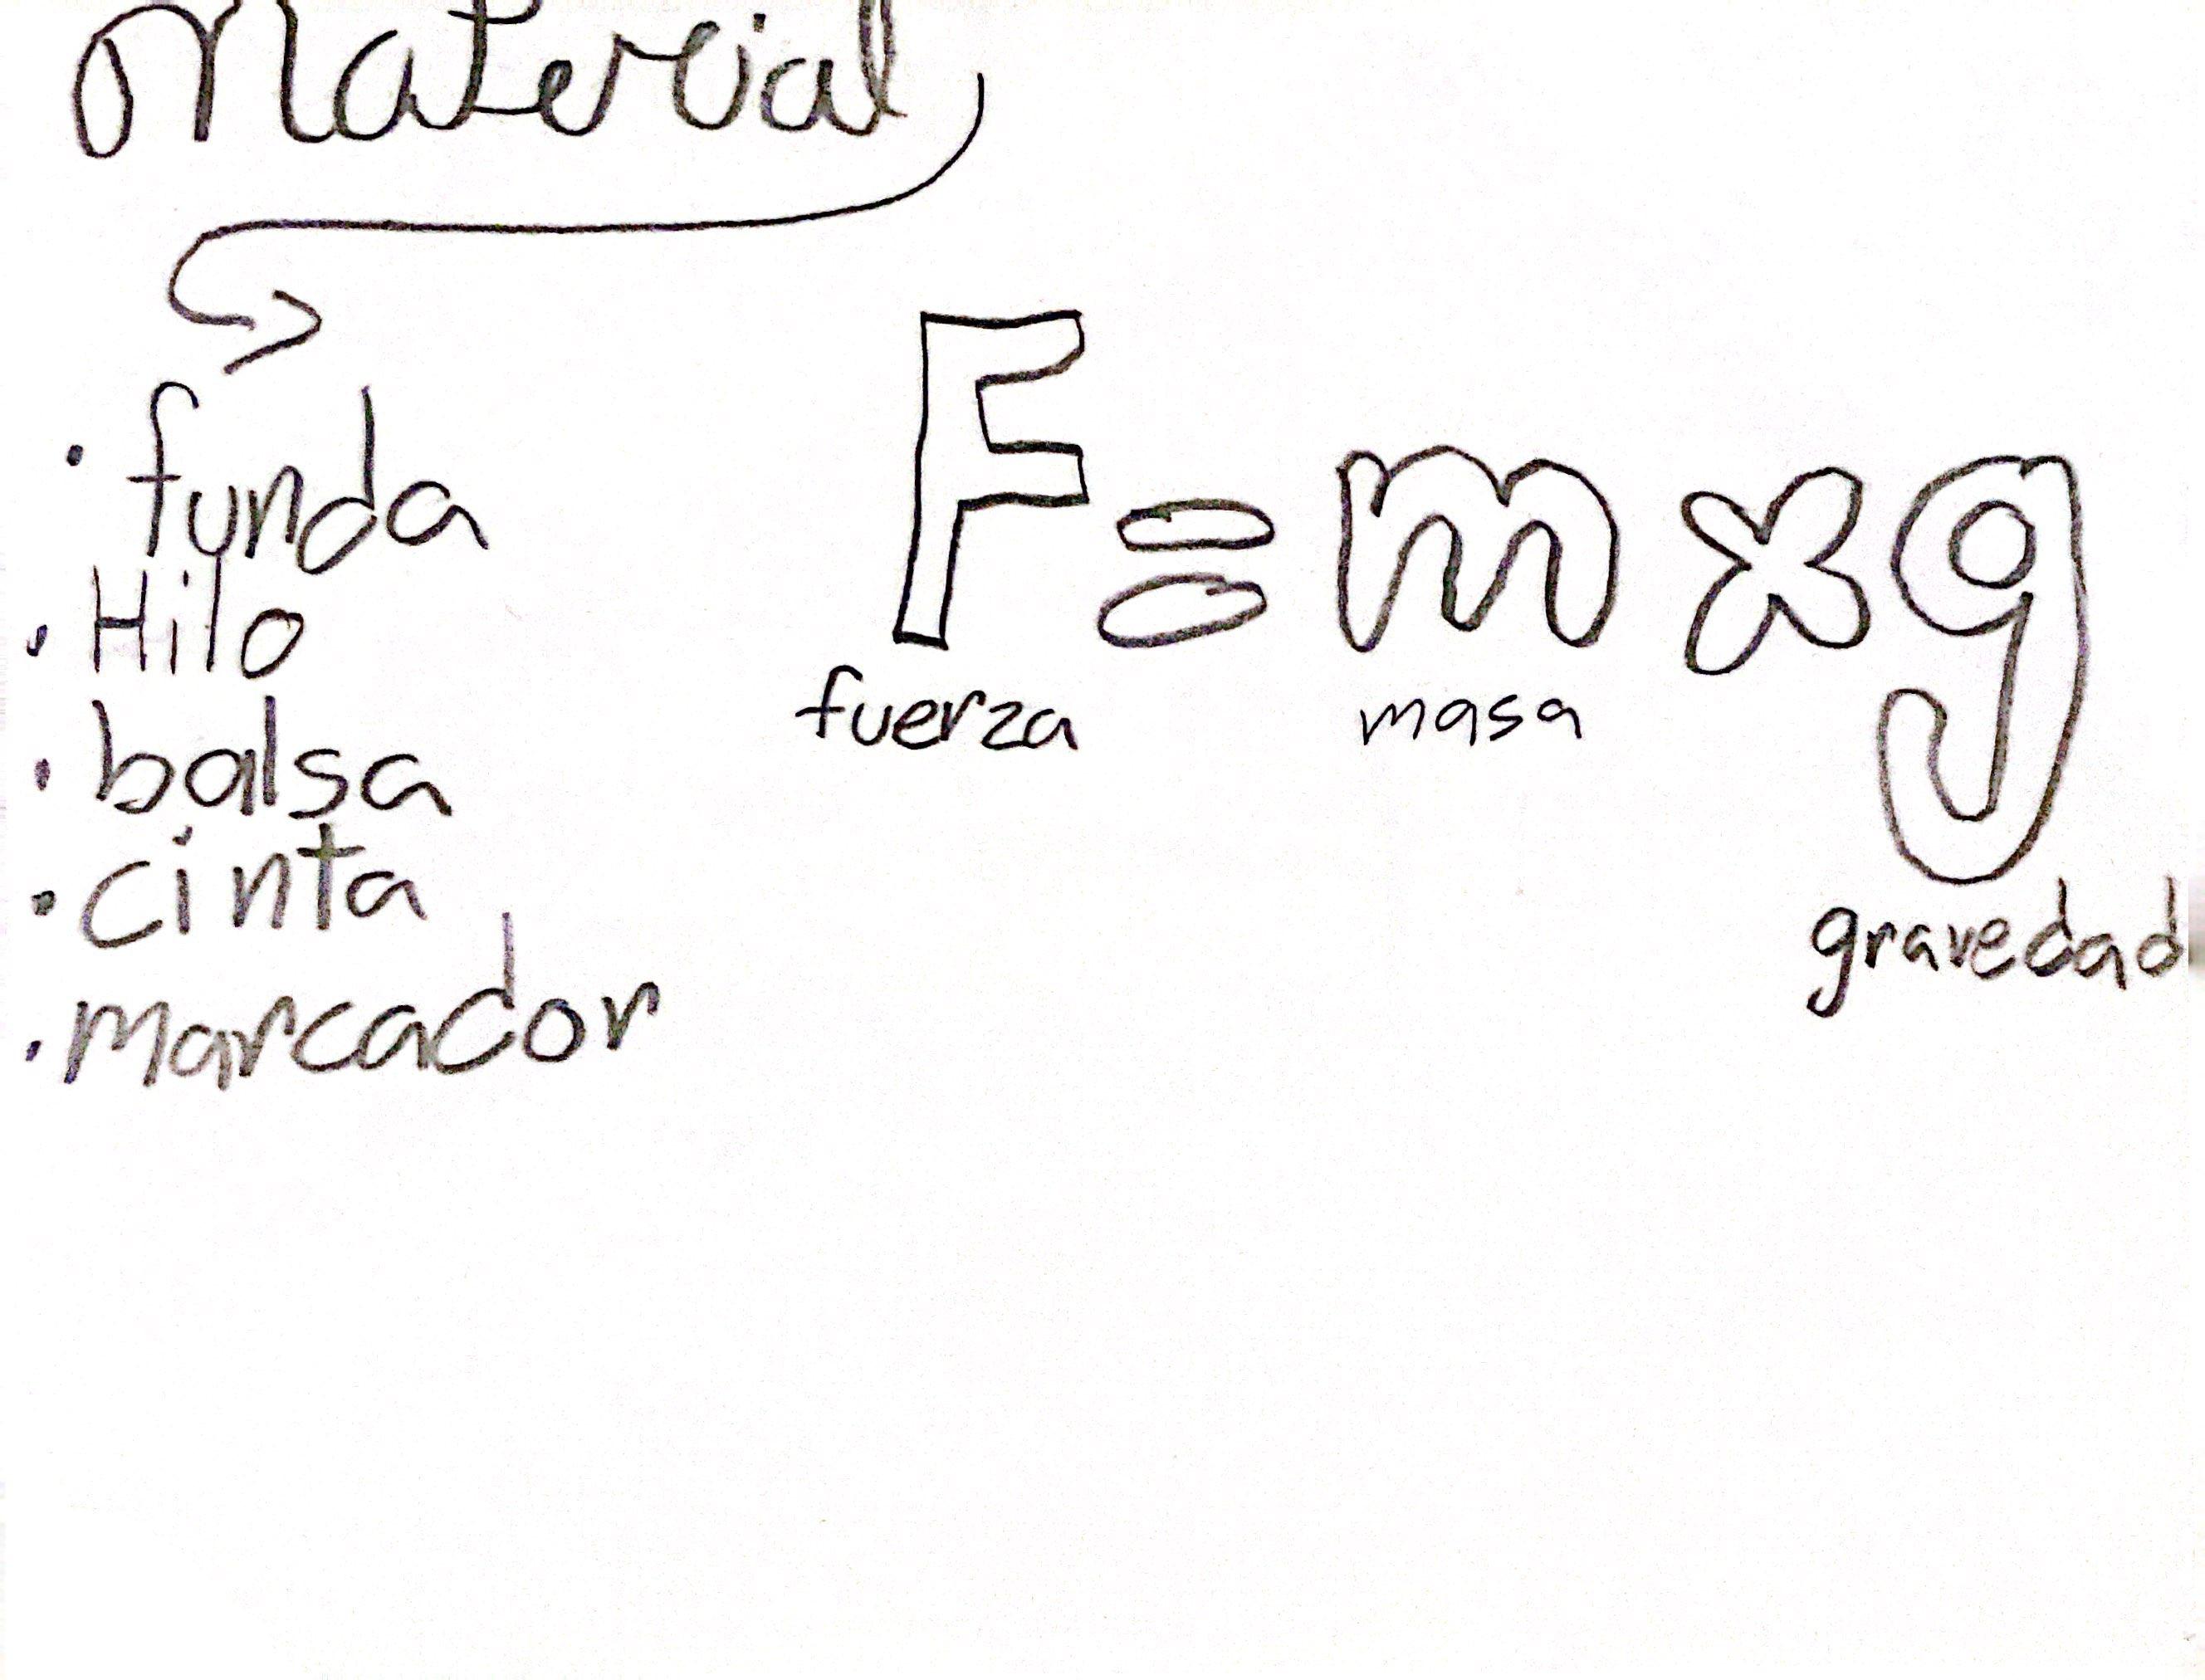 Material
· funda
· Hilo
· balsa
· cinta
· marcador
F = m x g
fuerza masa
gravedad